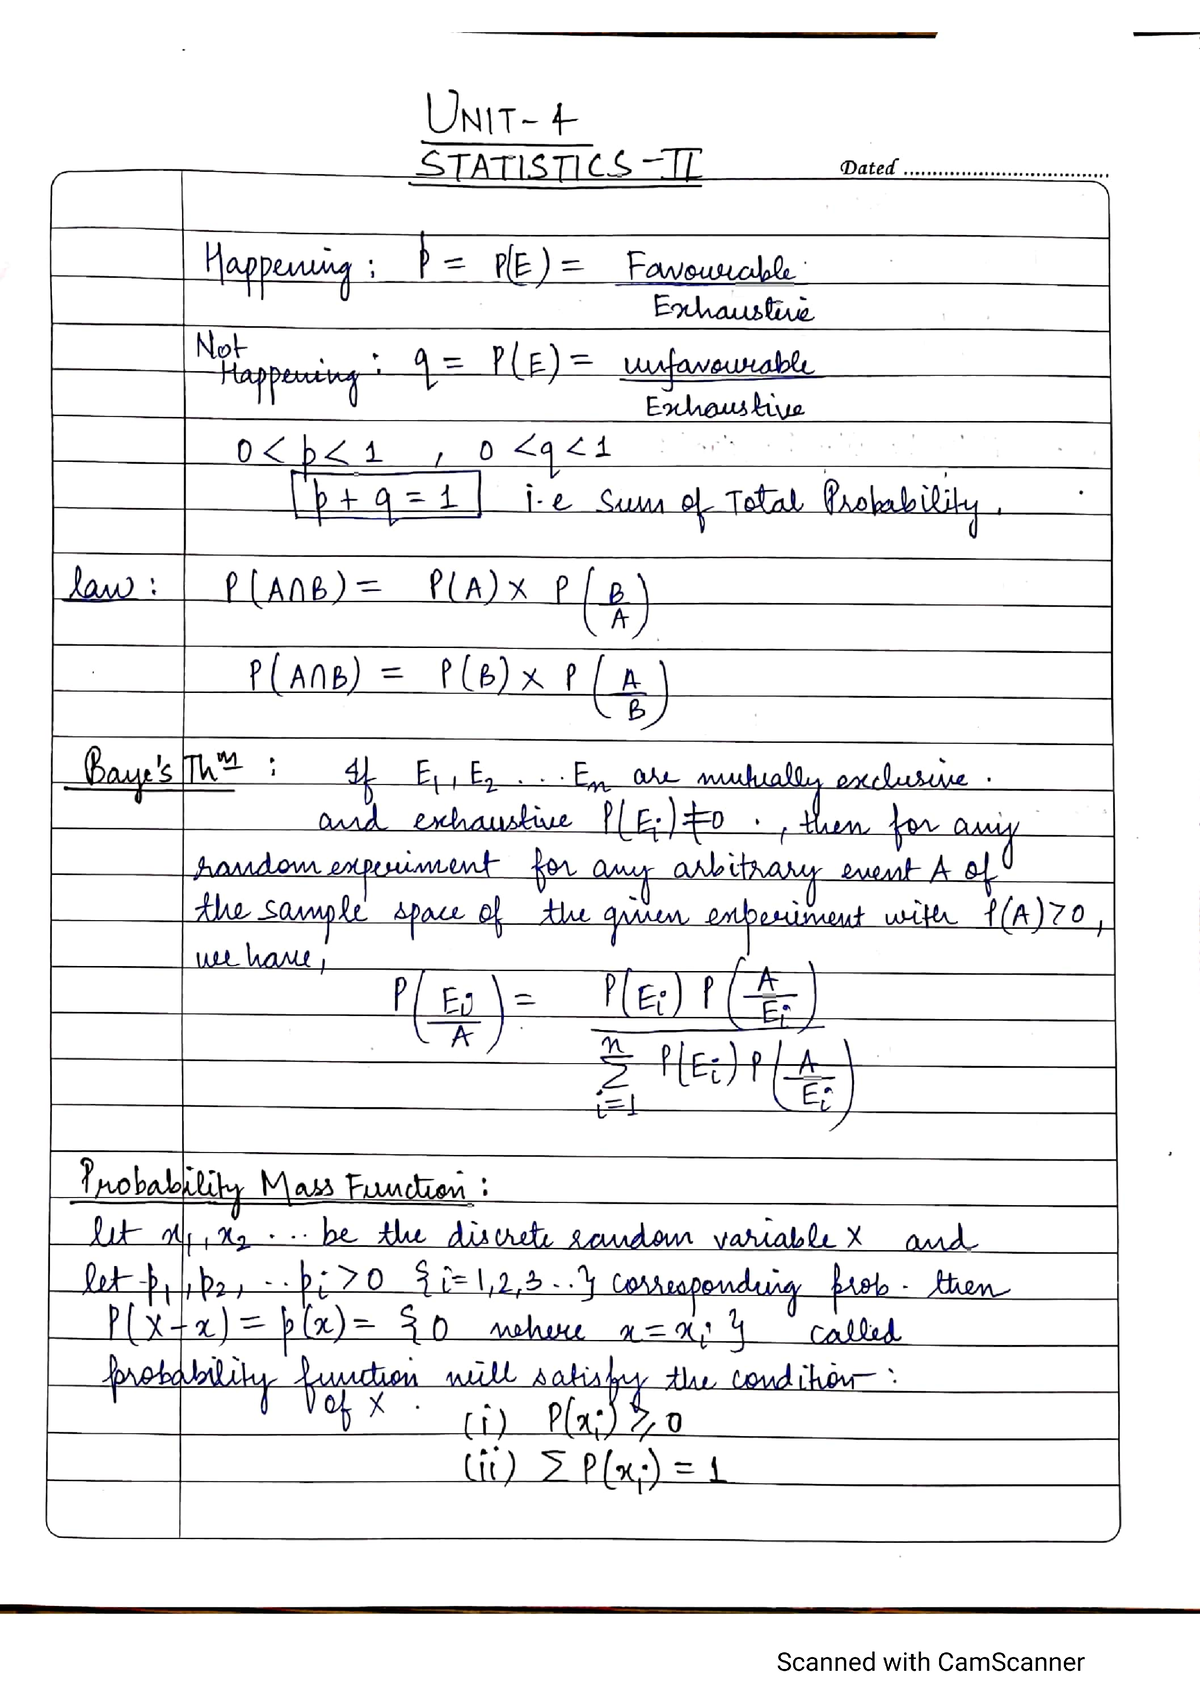 UNIT-4
STATISTICS-II
Dated
Happening : p = P(E) = Favourable
Exhaustive
Not
Happening : q = P(E) = unfavourable
Exhaustive
0 < p < 1 , 0 < q < 1
p + q = 1 i.e Sum of Total Probability.
law : P(A∩B) = P(A) x P(B/A)
P(A∩B) = P(B) x P(A/B)
Baye's Thm : If E1, E2 ... En are mutually exclusive.
and exhaustive P(Ei) ≠ 0 , then for any
random experiment for any arbitrary event A of
the sample space of the given experiment with P(A)>0,
we have,
P(Ei/A) = P(Ei) P(A/Ei)
n
∑ P(Ei) P(A/Ei)
i=1
Probability Mass Function :
let x1, x2 ... be the discrete random variable X and
let p1, p2, ... pi > 0 {i=1,2,3..} corresponding prob. then
P(X=x) = p(x) = {0 where x = xi } called
probability function will satisfy the condition :
of X .
(i) P(xi) ⩾ 0
(ii) ∑ P(xi) = 1
Scanned with CamScanner